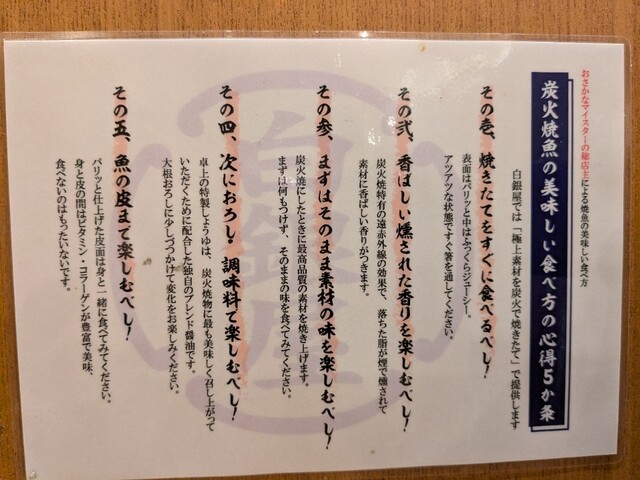 おさかなマイスターの総店主による焼魚の美味しい食べ方
炭火焼魚の美味しい食べ方の心得5か条
白銀屋では「極上素材を炭火で焼きたて」で提供します
その壱、焼きたてをすぐに食べるべし!
表面はパリッと中はふっくらジューシー。
アツアツな状態ですぐ箸を通してください。
その弐、香ばしい燻された香りを楽しむべし!
炭火焼特有の遠赤外線の効果で、落ちた脂が煙で燻されて
素材に香ばしい香りがつきます。
その参、まずはそのまま素材の味を楽しむべし!
炭火焼にしたときに最高品質の素材を焼き上げます。
まずは何もつけず、そのままの味を食べてみてください。
その四、次におろし・調味料で楽しむべし!
卓上の特製しょうゆは、炭火焼物に最も美味しく召し上がって
いただくために配合した独自のブレンド醤油です。
大根おろしに少しづつかけて変化をお楽しみください。
その五、魚の皮まで楽しむべし!
パリッと仕上げた皮面は身と一緒に食べてみてください。
身と皮の間はビタミン・コラーゲンが豊富で美味、
食べないのはもったいないです。